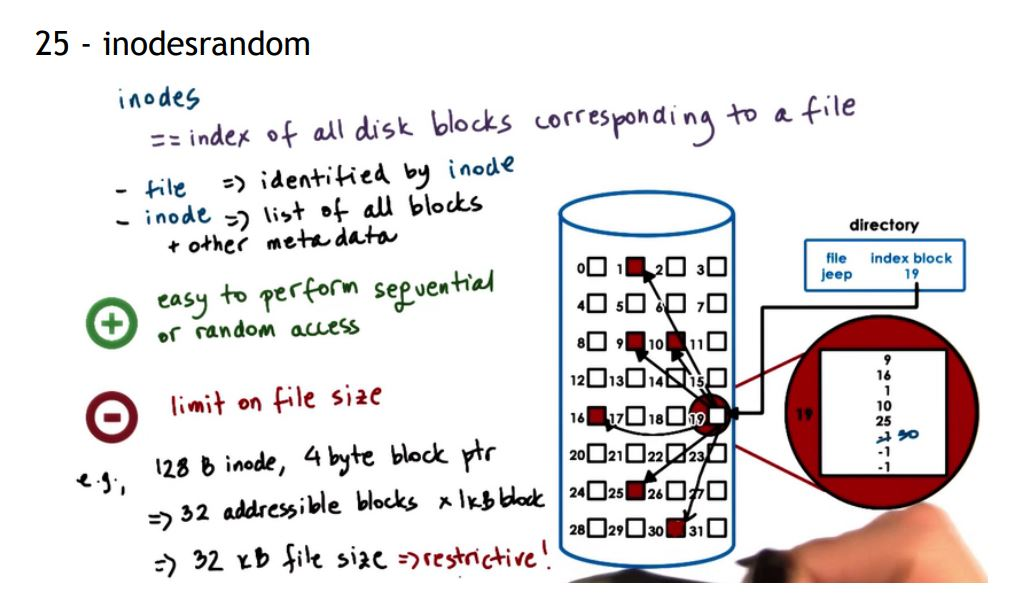 25 - inodesrandom
inodes
== index of all disk blocks corresponding to a file
- file => identified by inode
- inode => list of all blocks
+ other metadata
+ easy to perform sequential
or random access
- limit on file size
e.g., 128 B inode, 4 byte block ptr
=> 32 addressible blocks x 1kB block
=> 32 kB file size => restrictive!
directory
file index block
jeep 19
0 1 2 3
4 5 6 7
8 9 10 11
12 13 14 15
16 17 18 19
20 21 22 23
24 25 26 27
28 29 30 31
19
9
16
1
10
25
-1 30
-1
-1